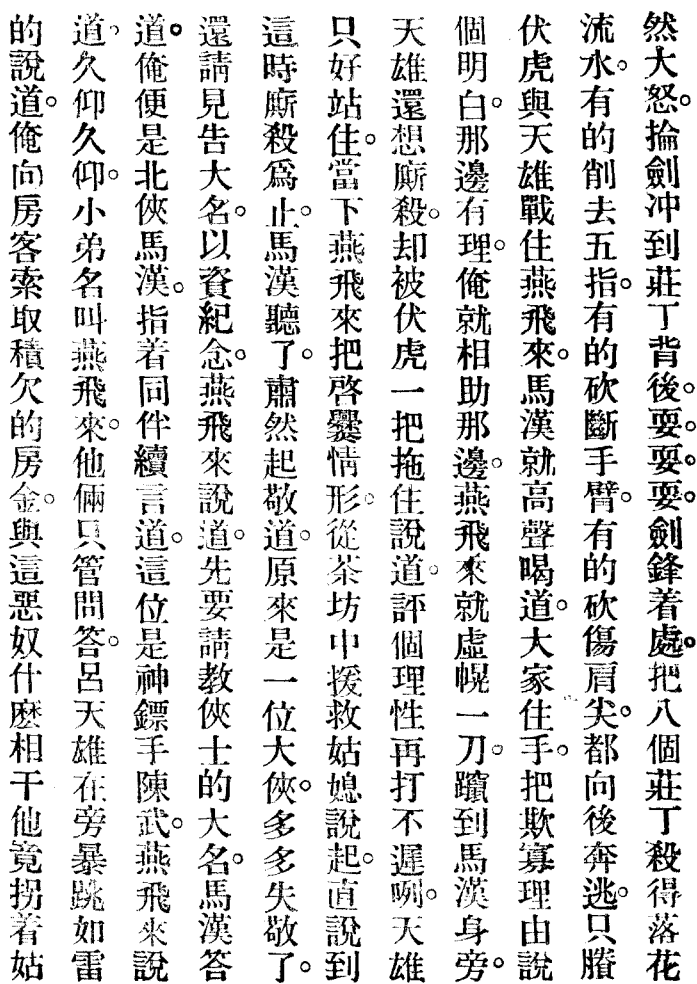 然大怒。掄劍冲到莊丁背後。耍。耍。耍。劍鋒着處。把八個莊丁殺得落花
流水。有的削去五指。有的砍斷手臂。有的砍傷肩尖。都向後奔逃。只賸
伏虎與天雄戰住燕飛來。馬漢就高聲喝道。大家住手。把欺寡理由說
個明白。那邊有理。俺就相助那邊。燕飛來就虛幌一刀。躥到馬漢身旁。
天雄還想廝殺。却被伏虎一把拖住說道。評個理性再打不遲咧。天雄
只好站住。當下燕飛來把啓釁情形。從茶坊中援救姑媳說起。直說到
這時廝殺爲止。馬漢聽了。肅然起敬道。原來是一位大俠。多多失敬了。
還請見告大名。以資紀念。燕飛來說道。先要請教俠士的大名。馬漢答
道。俺便是北俠馬漢。指着同伴續言道。這位是神鏢手陳武。燕飛來說
道。久仰久仰。小弟名叫燕飛來。他倆只管問答。呂天雄在旁暴跳如雷
的說道。俺向房客索取積欠的房金。與這惡奴什麽相干他竟拐着姑